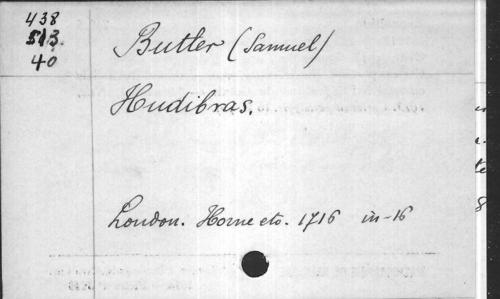 438
513.
40
Butler (Samuel)
Hudibras.
London. Horne etc. 1716 in-16